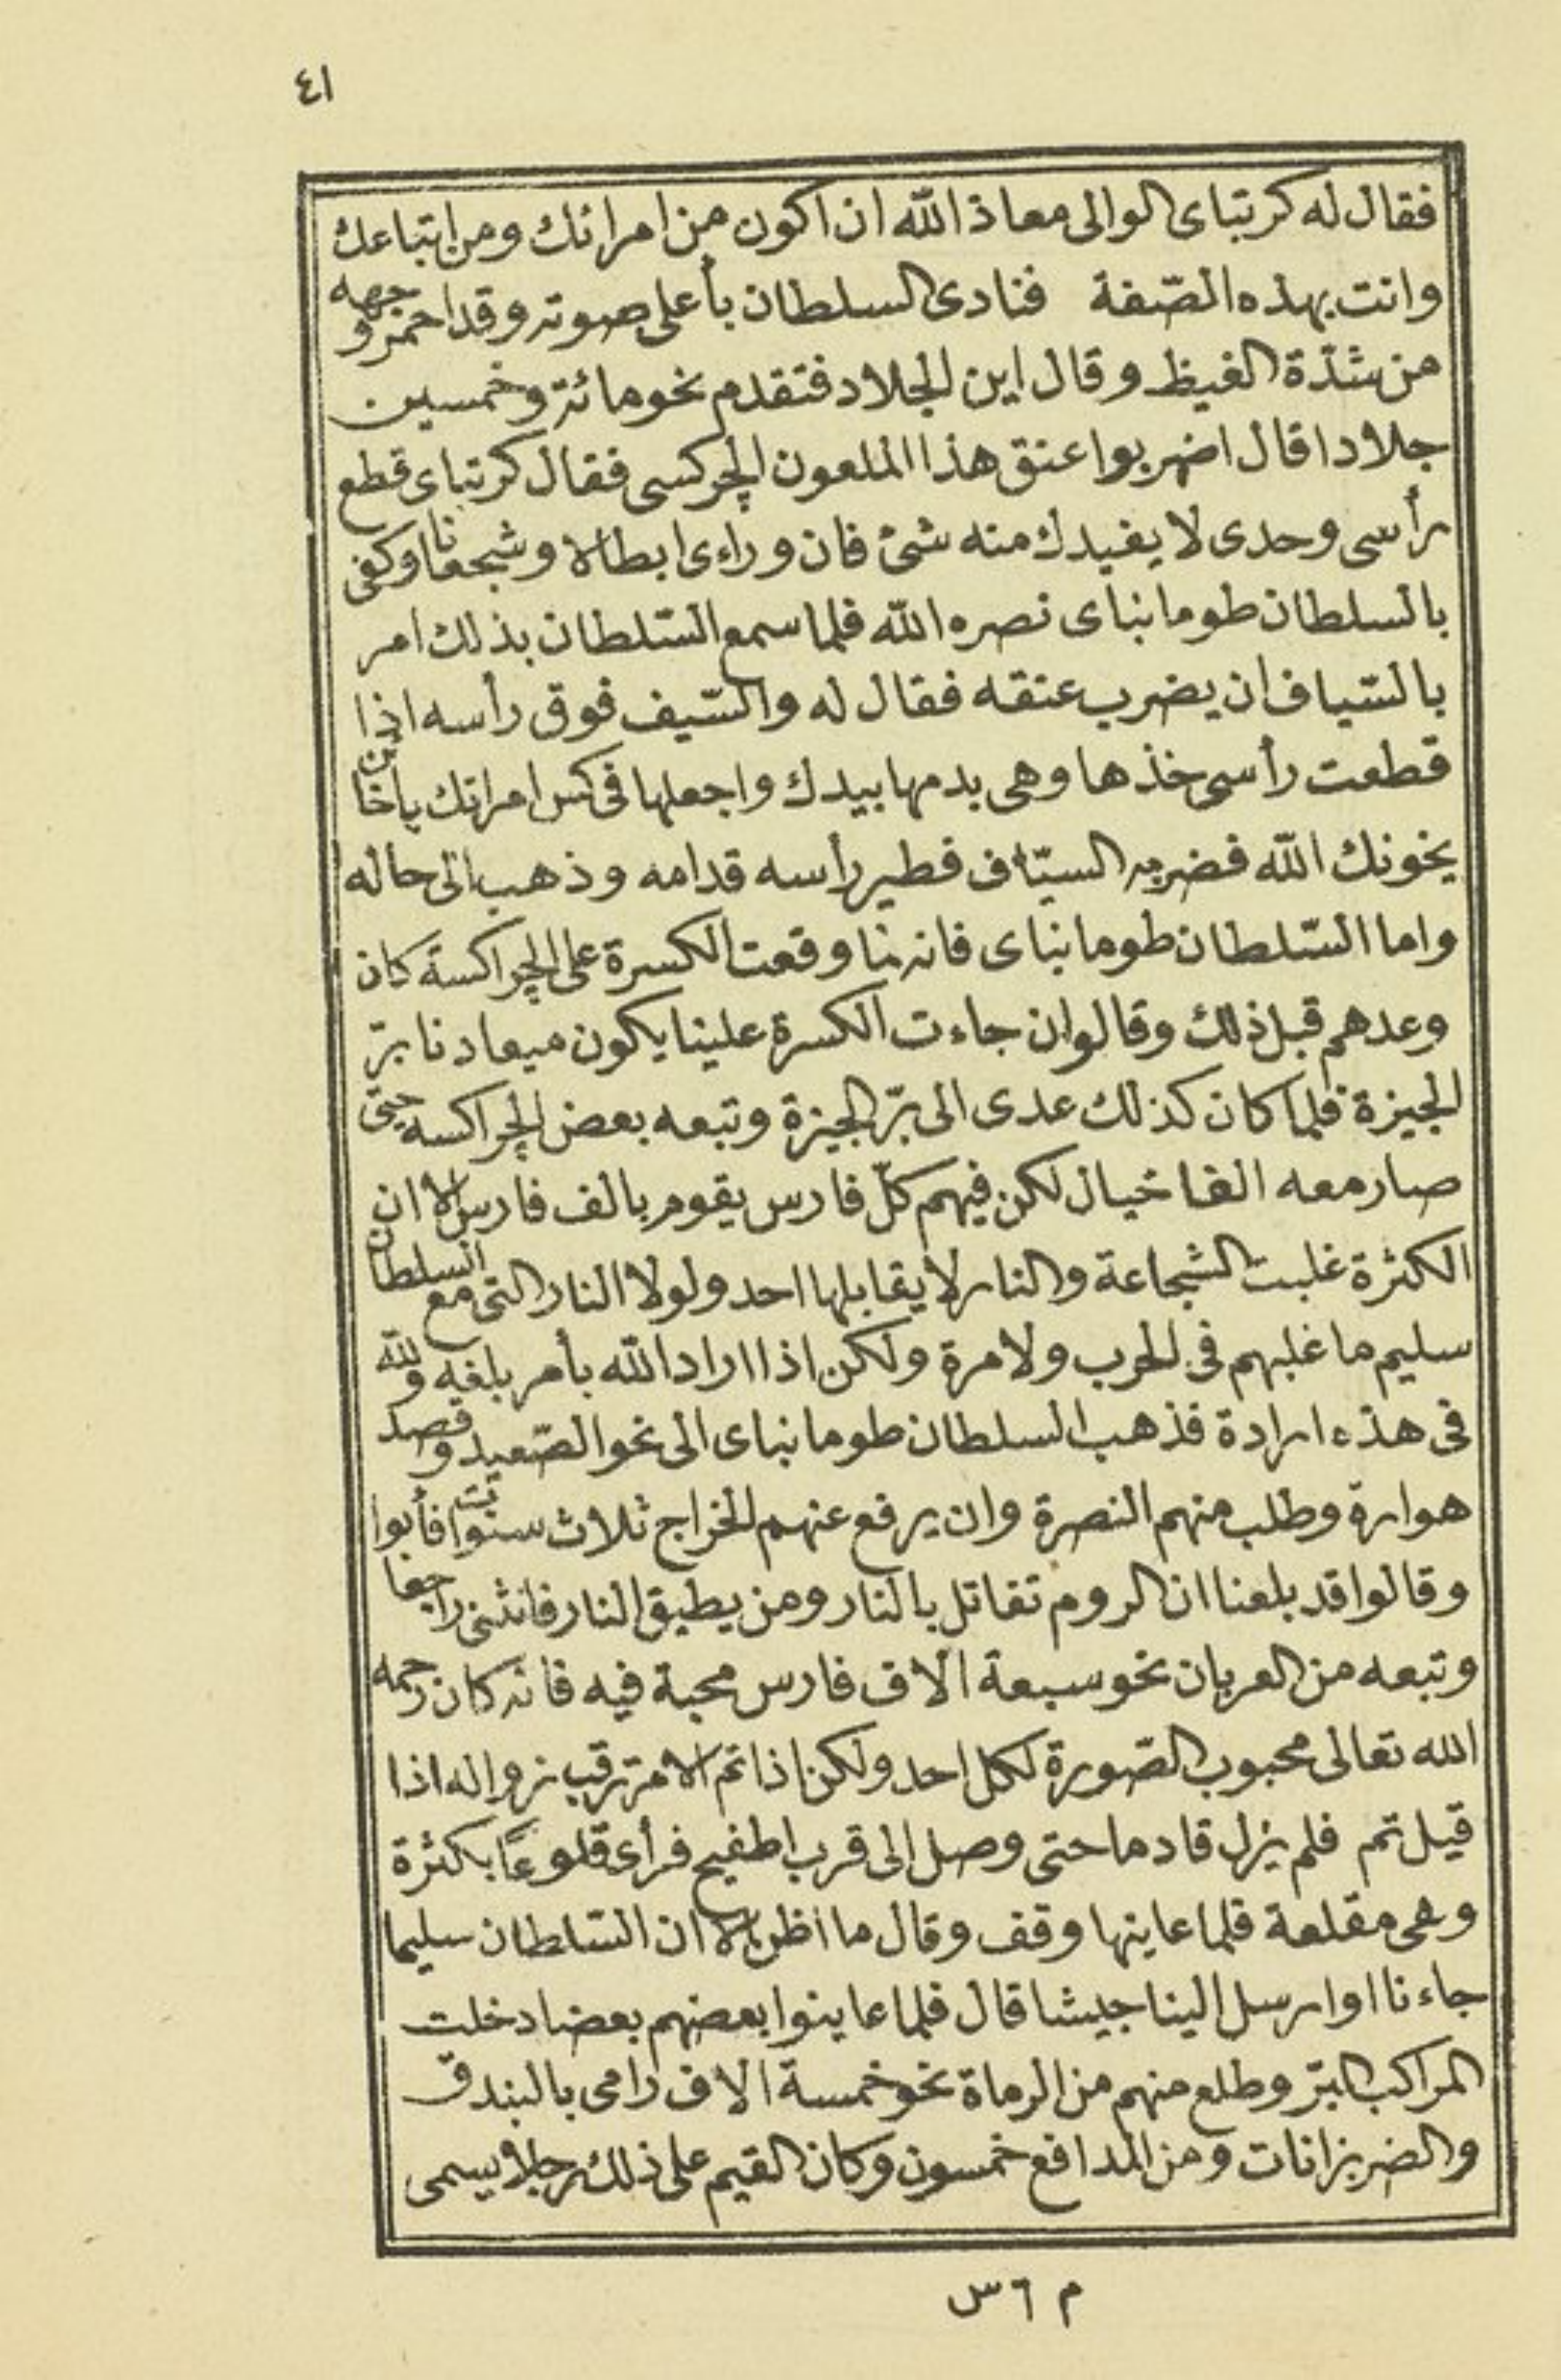 ٤١
فقال له كرتباى الوالى معاذ الله ان اكون من امرائك ومن اتباعك
وانت بهذه الصّفة فنادى السلطان بأعلى صوته وقد احمرّ وجهه
من شدّة الغيظ وقال اين الجلاد فتقدم نحو مائة وخمسين
جلادا قال اضربوا عنق هذا الملعون الچركسى فقال كرتباى قطع
رأسى وحدى لا يفيدك منه شئ فان وراءى ابطالا وشجعانا وكفى
بالسلطان طومانباى نصره الله فلما سمع السّلطان بذلك امر
بالسّياف ان يضرب عنقه فقال له والسّيف فوق رأسه اذا
قطعت رأسى خذها وهى بدمها بيدك واجعلها فى كس امراتك ياخائن
يخونك الله فضربه السيّاف فطير رأسه قدامه وذهب الى حاله
واما السّلطان طومانباى فانه لما وقعت الكسرة على الچراكسة كان
وعدهم قبل ذلك وقالوا ان جاءت الكسرة علينا يكون ميعادنا برّ
الجيزة فلما كان كذلك عدى الى برّ الجيزة وتبعه بعض الچراكسه حتى
صار معه الفا خيال لكن فيهم كلّ فارس يقوم بالف فارس الا ان
الكثرة غلبت الشجاعة والنار لا يقابلها احد ولولا النار التى مع السلطان
سليم ما غلبهم فى الحرب ولا مرة ولكن اذا اراد الله بأمر بلغه ولله
فى هذه ارادة فذهب السلطان طومانباى الى نحو الصّعيد وقصد
هوارة وطلب منهم النصرة وان يرفع عنهم الخراج ثلاث سنوات فأبوا
وقالوا قد بلغنا ان الروم تقاتل بالنار ومن يطيق النار فانثنى راجعا
وتبعه من العربان نحو سبعة الاف فارس محبة فيه فانه كان رحمه
الله تعالى محبوب الصّورة لكل احد ولكن اذا تم الامر ترقب زواله اذا
قيل تم فلم يزل قادما حتى وصل الى قرب اطفيح فرأى قلوعًا بكثرة
وهى مقلعة فلما عاينها وقف وقال ما اظن الا ان السّلطان سليما
جاءنا او ارسل الينا جيشا قال فلما عاينوا بعضهم بعضا دخلت
المراكب البرّ وطلع منهم من الرماة نحو خمسة الاف رامى بالبندق
والضربزانات ومن المدافع خمسون وكان القيم على ذلك رجلا يسمى
م ٦ س